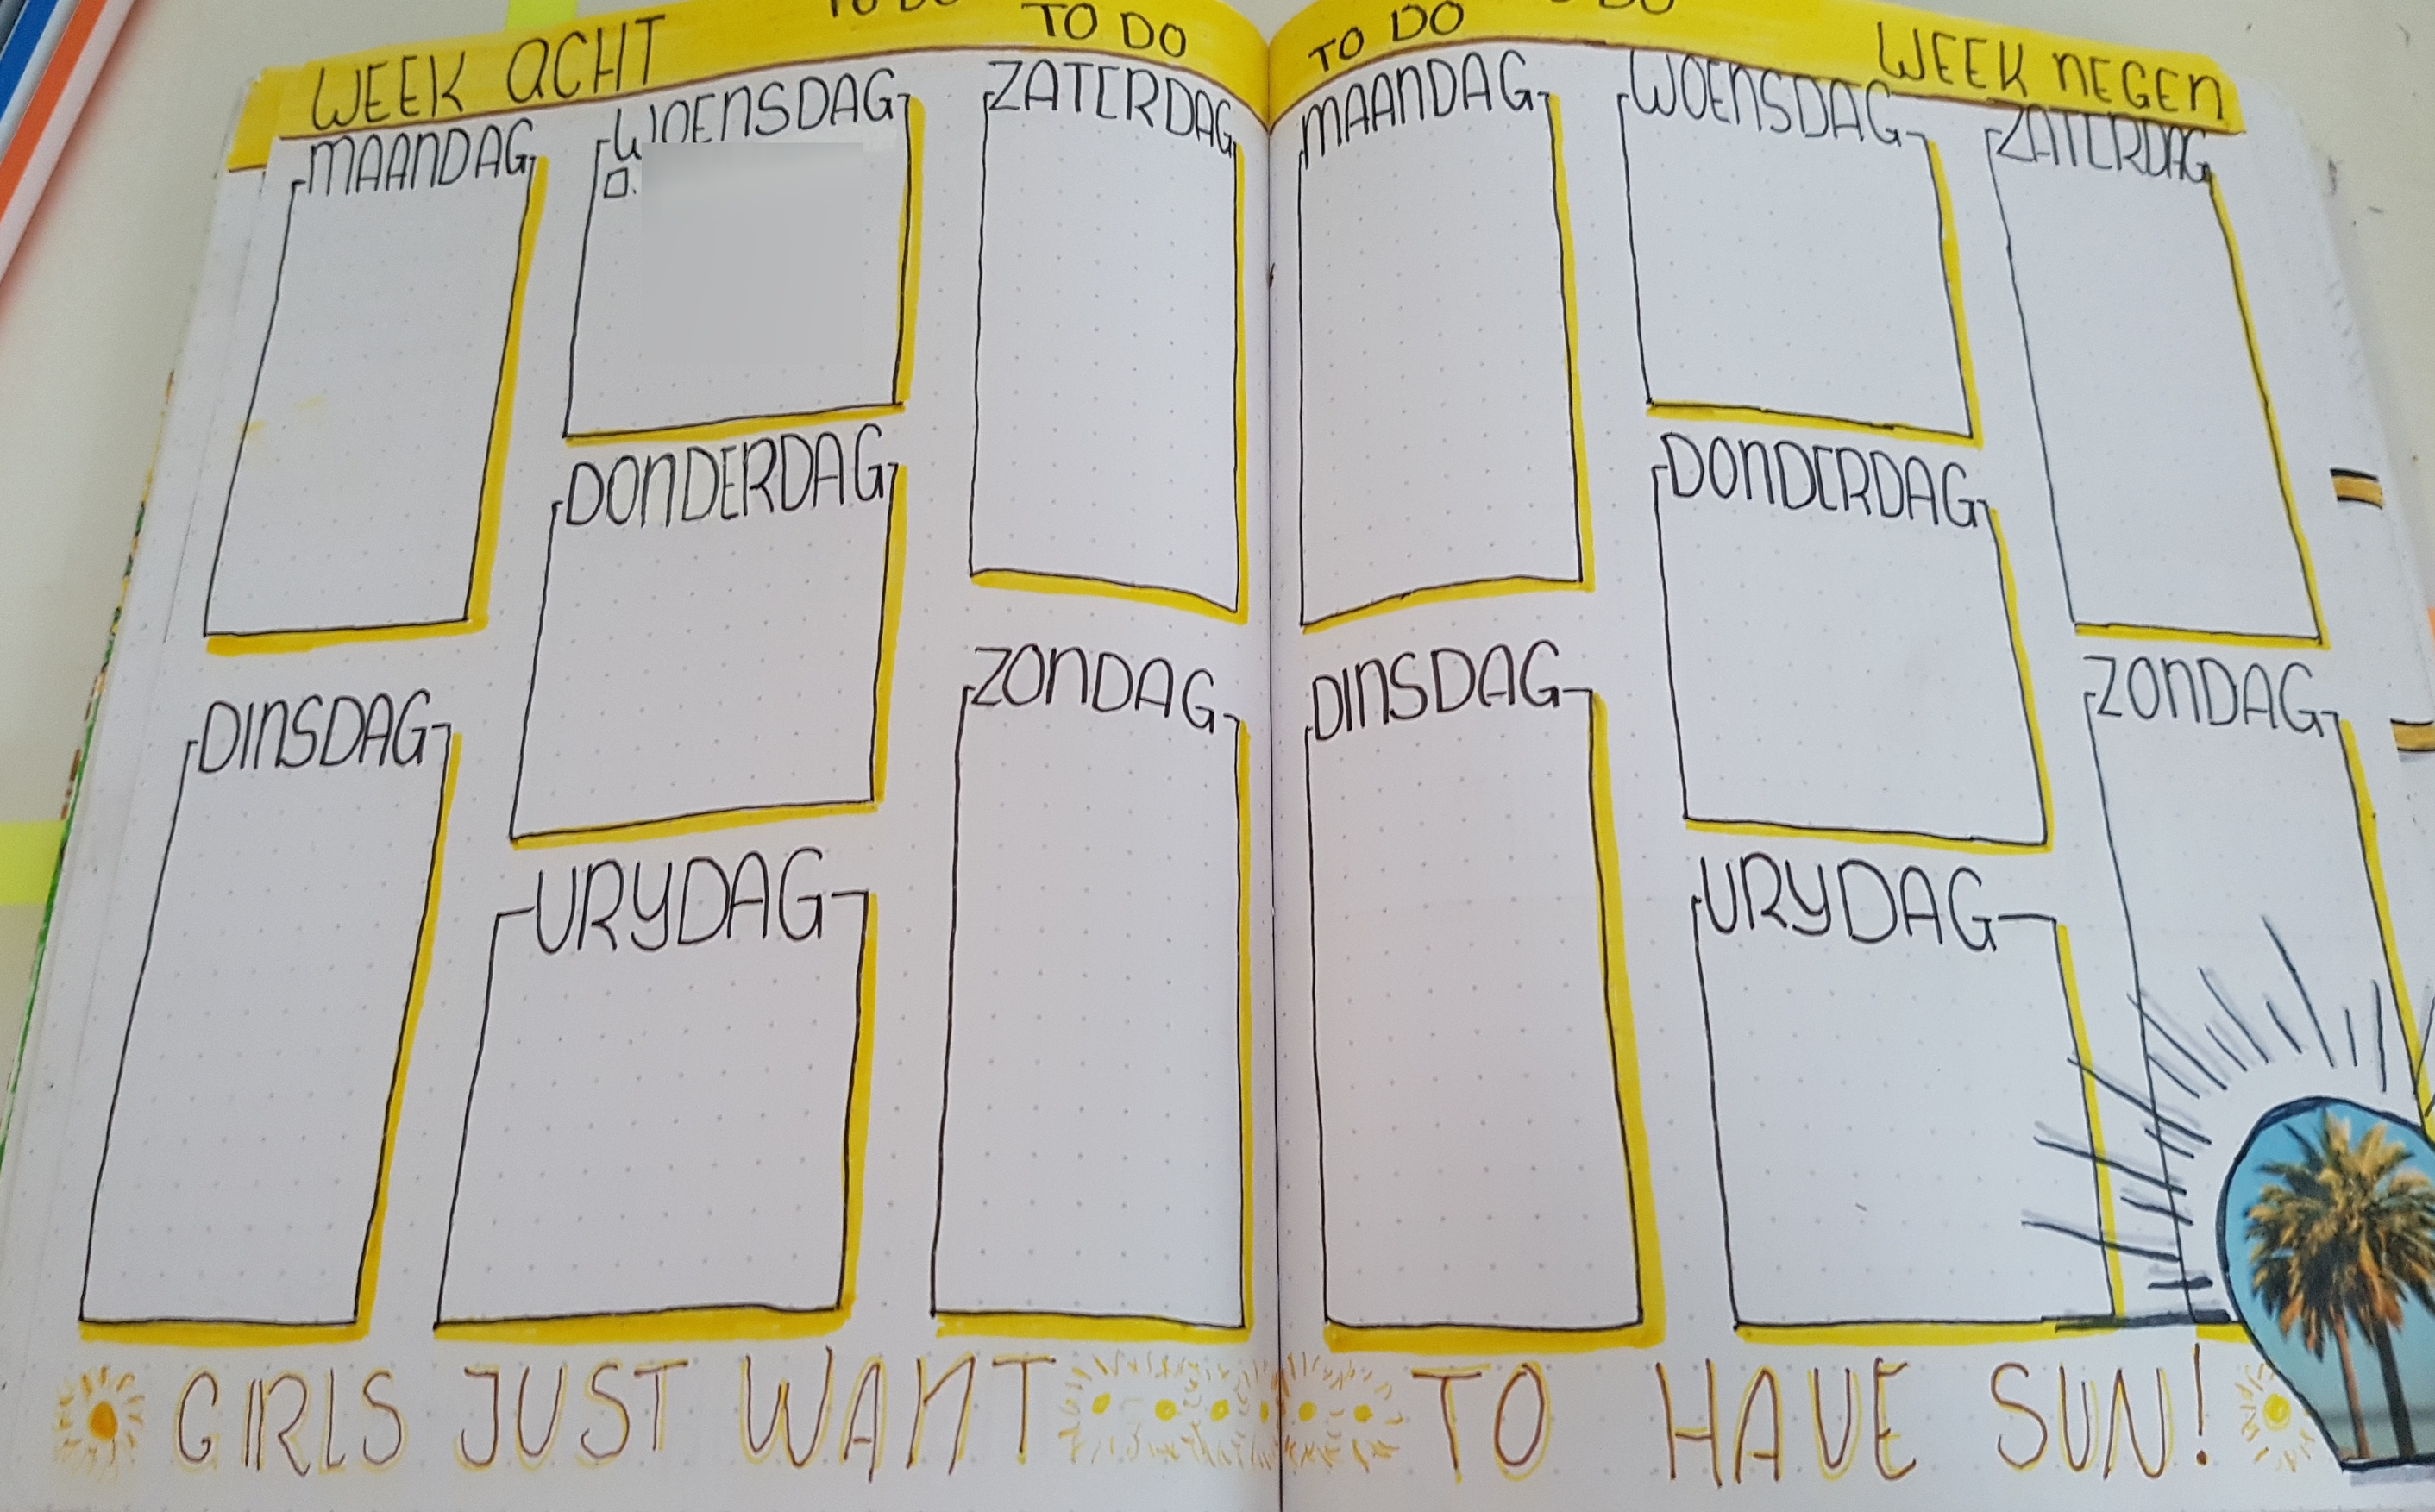 WEEK ACHT
TO DO
MAANDAG
DINSDAG
WOENSDAG
DONDERDAG
VRYDAG
ZATERDAG
ZONDAG
TO DO
WEEK NEGEN
MAANDAG
DINSDAG
WOENSDAG
DONDERDAG
VRYDAG
ZATERDAG
ZONDAG
GIRLS JUST WANT TO HAVE SUN!